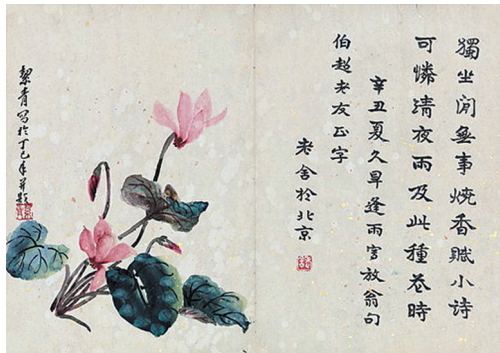 獨坐閒無事燒香賦小詩
可憐清夜雨及此種花時
辛丑夏久旱逢雨寫放翁句
伯超老友正字
老舍於北京
絜青写於丁巳年并題